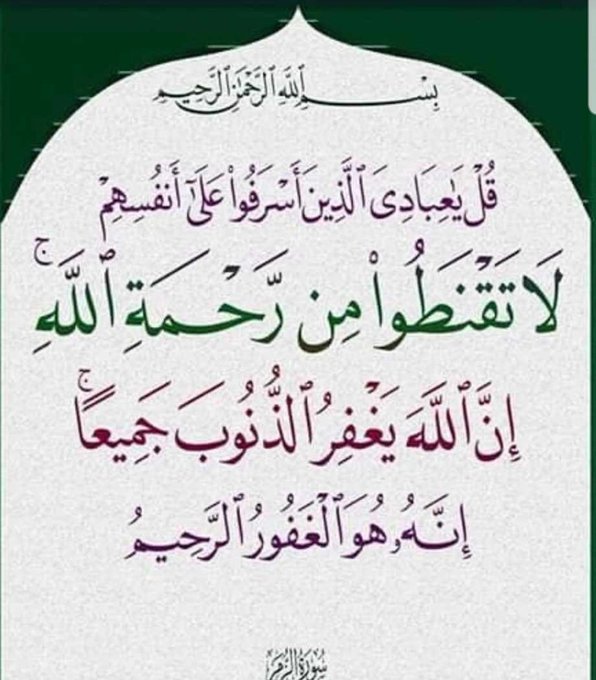 بِسْمِ ٱللَّهِ ٱلرَّحْمَٰنِ ٱلرَّحِيمِ
قُلْ يَٰعِبَادِىَ ٱلَّذِينَ أَسْرَفُوا۟ عَلَىٰٓ أَنفُسِهِمْ
لَا تَقْنَطُوا۟ مِن رَّحْمَةِ ٱللَّهِ ۚ
إِنَّ ٱللَّهَ يَغْفِرُ ٱلذُّنُوبَ جَمِيعًا ۚ
إِنَّهُۥ هُوَ ٱلْغَفُورُ ٱلرَّحِيمُ
سُورَةُ ٱلزُّمَر